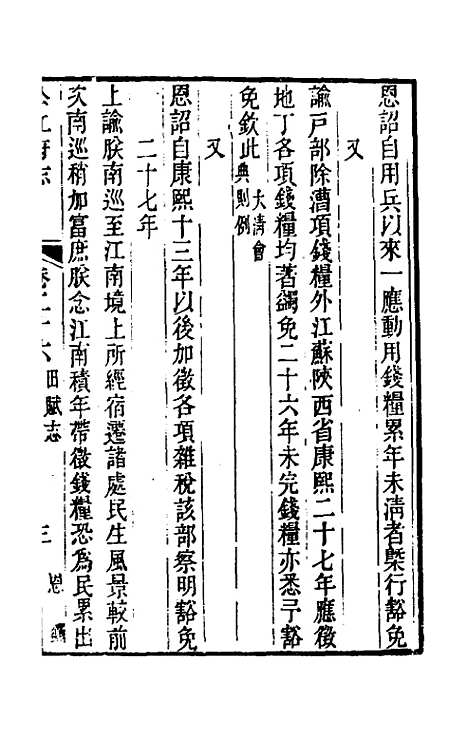 恩詔自用兵以來一應動用錢糧累年未淸者槩行豁免
又
諭戸部除漕項錢糧外江蘇陝西省康熙二十七年應徵
地丁各項錢糧均著蠲免二十六年未完錢糧亦悉予豁
免欽此大淸會典則例
又
恩詔自康熙十三年以後加徵各項雜稅該部察明豁免
二十七年
上諭朕南巡至江南境上所經宿遷諸處民生風景較前
次南巡稍加富庶朕念江南積年帶徵錢糧恐爲民累出
松江府志 卷二十六 田賦志 三 恩蠲